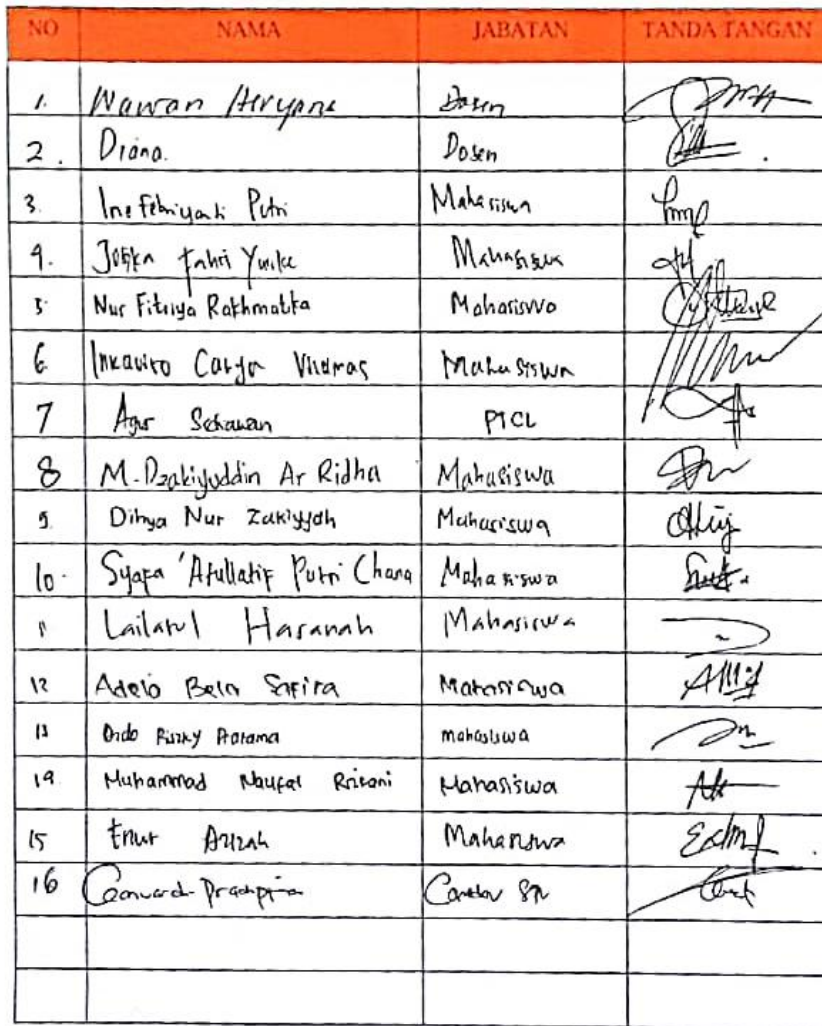 NO NAMA JABATAN TANDA TANGAN
1. Wawan Heryana Dosen
2. Diana. Dosen
3. Ine Febriyanti Putri Mahasiswa
4. Fahri Mahasiswa
5 Nur Fitriya Rakhmatika Mahasiswa
6 Mahasiswa
7 Agus Setiawan PTCL
8 M. Dzakiyuddin Ar Ridha Mahasiswa
9. Dihya Nur Zakiyyah Mahasiswa
10. Syafa 'Afullatif Putri Chana Mahasiswa
11 Lailatul Hasanah Mahasiswa
12 Adelo Bela Safira Mahasiswa
13 Dido Rizky mahasiswa
14 Muhammad Naufal Mahasiswa
15 Azizah Mahasiswa
16